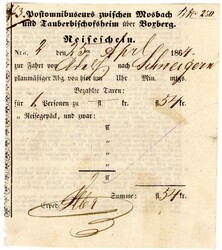 Postomnibuscurs zwischen Mosbach
und Tauberbischofsheim über Boxberg.
Reiseschein.
Nro. 2 den 13 April 1864.
zur Fahrt von nach Schweigern
planmäßiger Abg. von hier um Uhr Min. mitgs.
Bezahlte Taxen:
für 1 Personen zu fl. kr. fl. 54 kr.
" Reisegepäck, und zwar:
"
"
"
Summe: fl. 54 kr.
Exped.